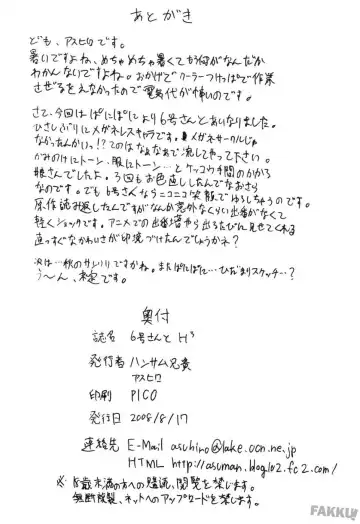 あとがき
ども、アスヒロです。
暑いですよね、めちゃめちゃ暑くてもう何がなんだか
わかんないですよね。おかげでクーラーつけっぱで作業
せざるをえなかったので電気代が怖いのです。
さて、今回はぱにぽにより6号さんとあいなりました。
ひさしぶりにメガネレスキャラです。メガネサークルじゃ
なかったんかいっ!?てのはなぁなぁで流してやって下さい。
かみのけにトーン、服にトーン…とケッコウ手間のかかる
娘さんでしたよ。3回もお色直ししたんでなおさら
なのです。でも6号さんならニコニコ笑顔でゆるしちゃうのです。
原作読み返したんですがなんか意外なくらい出番がなくて
軽くショックです。アニメでの出番増やら出るたびに見せてくれる
まっすぐなかわいさが印象づけたんでしょうかネ?
次は…秋のサンクリですかね。またぱにぽに…ひだまりスケッチ…?
う〜ん、未定です。
奥付
誌名 6号さんと H³
発行者 ハンサム兄貴
アスヒロ
印刷 PICO
発行日 2008/8/17
連絡先 E-Mail asuhiro@lake.ocn.ne.jp
HTML http://asuman.blog102.fc2.com/
※18歳未満の方への購読、閲覧を禁じます。
無断複製、ネットへのアップロードを禁じます。
FAKKU!